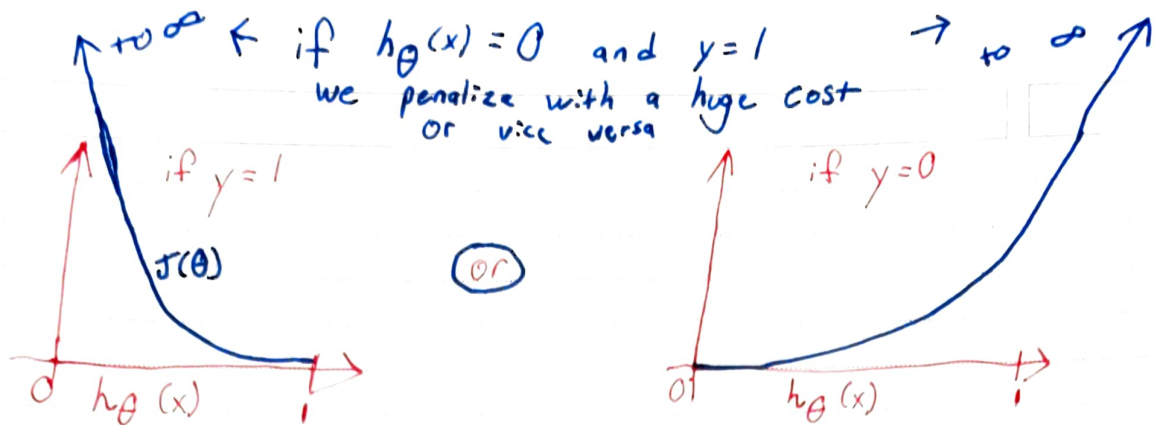 to ∞ ← if hθ(x) = 0 and y = 1 → to ∞
we penalize with a huge cost
or vice versa
if y = 1
if y = 0
J(θ)
or
0 hθ (x) 1
0 hθ (x) 1